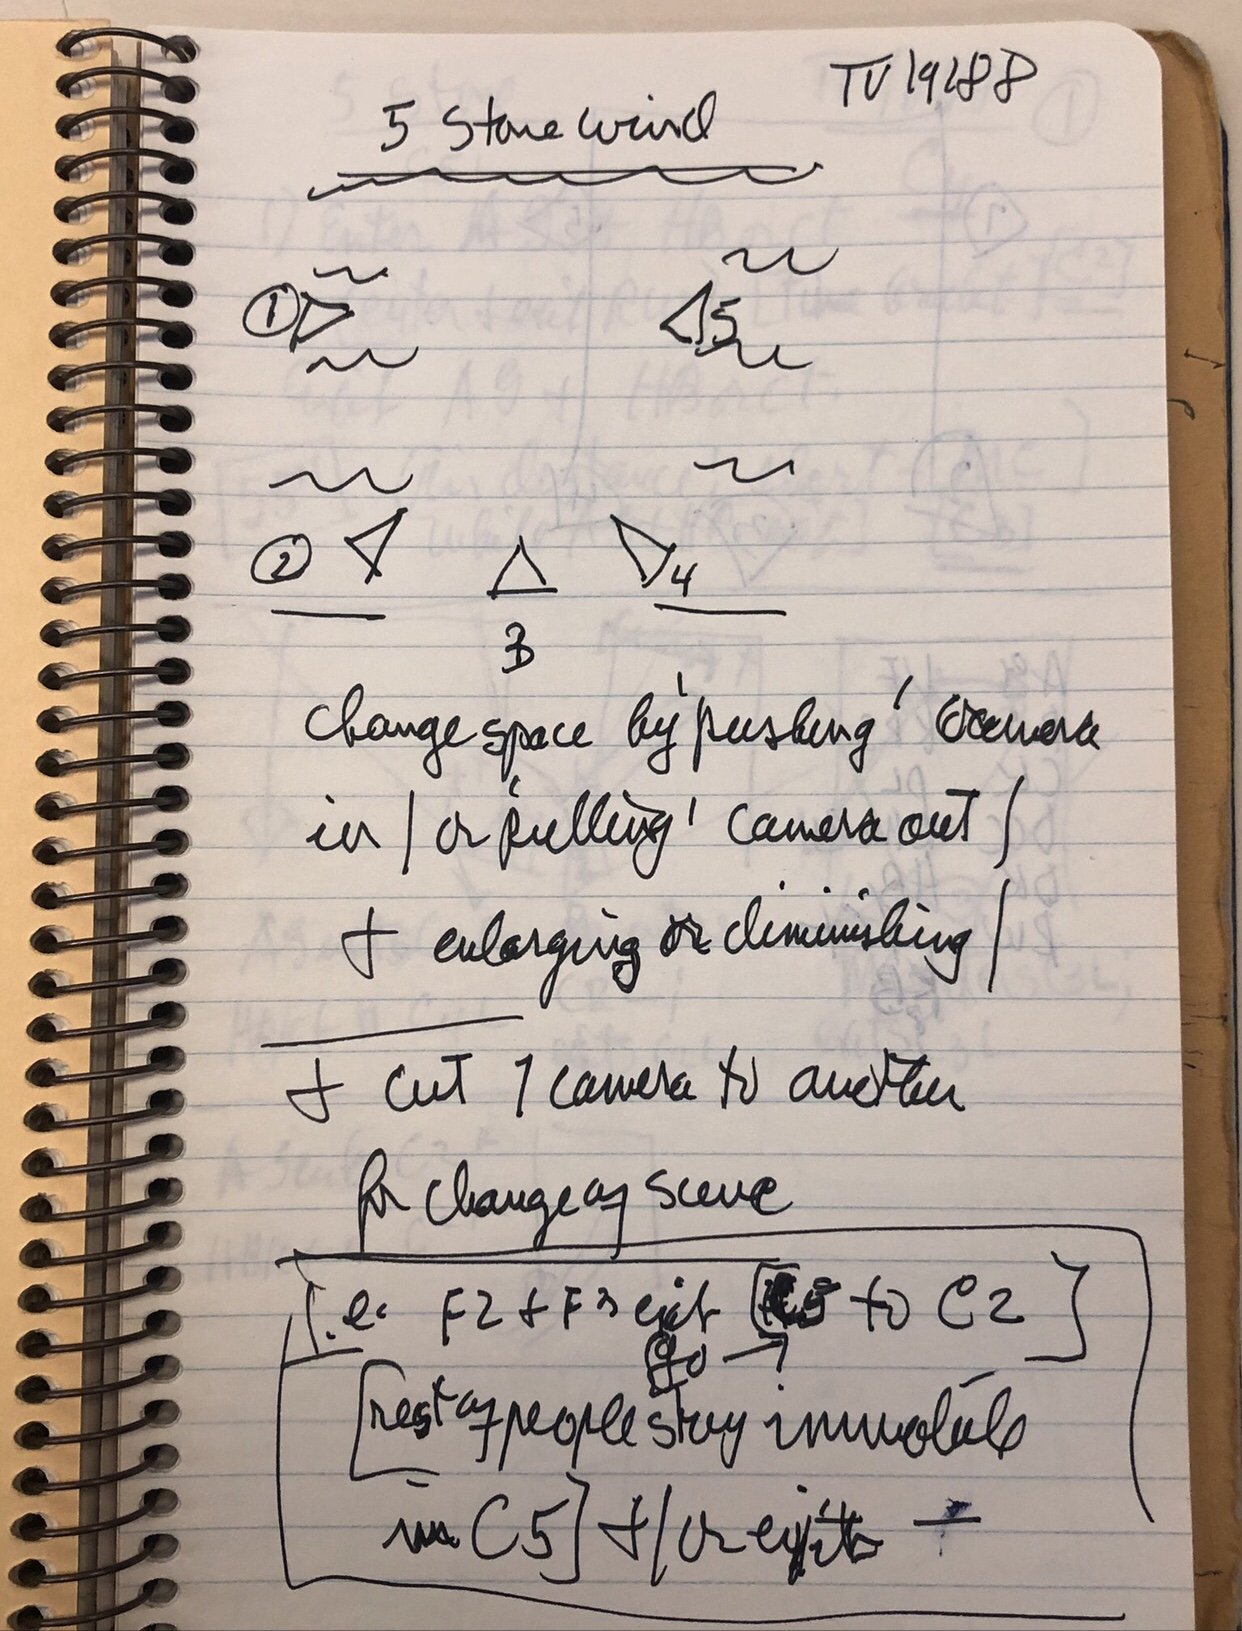 TV 1988
5 Stone Wind
1
5
2
4
3
change space by 'pushing' camera
in / or 'pulling' camera out /
+ enlarging or diminishing /
+ cut 1 camera to another
for change of scene
I.e. F2 + F3 exit to C2]
go →
[rest of people stay immobile
in C5] + / or exit